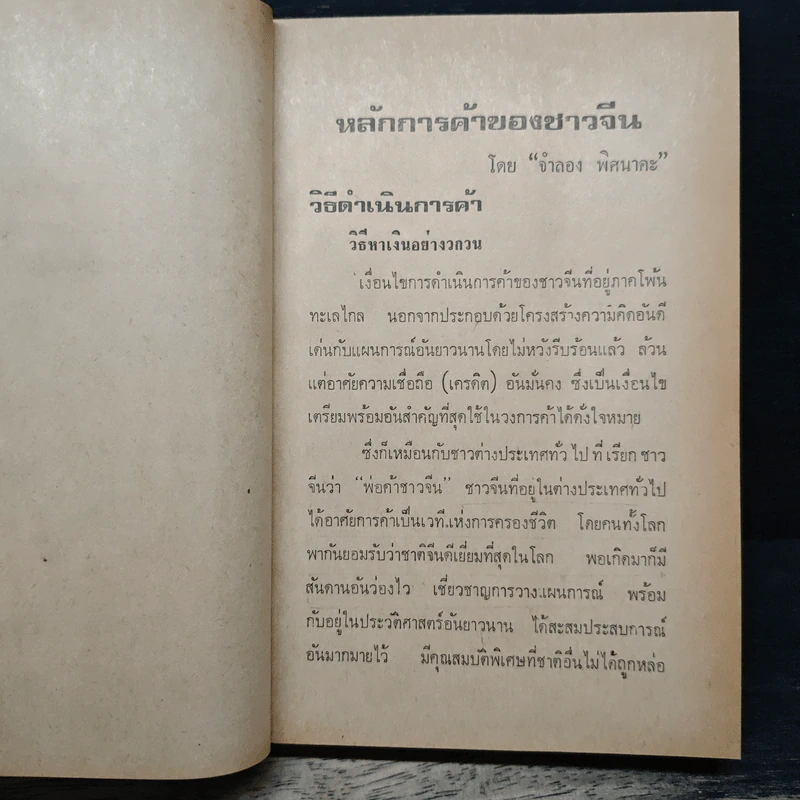 หลักการค้าของชาวจีน
โดย “จำลอง พิศนาคะ”
วิธีดำเนินการค้า
วิธีหาเงินอย่างวกวน
เงื่อนไขการดำเนินการค้าของชาวจีนที่อยู่ภาคโพ้น
ทะเลไกล นอกจากประกอบด้วยโครงสร้างความคิดอันดี
เด่นกับแผนการณ์อันยาวนานโดยไม่หวังรีบร้อนแล้ว ล้วน
แต่อาศัยความเชื่อถือ (เครดิต) อันมั่นคง ซึ่งเป็นเงื่อนไข
เตรียมพร้อมอันสำคัญที่สุดใช้ในวงการค้าได้ดั่งใจหมาย
ซึ่งก็เหมือนกับชาวต่างประเทศทั่วไปที่เรียกชาว
จีนว่า “พ่อค้าชาวจีน” ชาวจีนที่อยู่ในต่างประเทศทั่วไป
ได้อาศัยการค้าเป็นเวทีแห่งการครองชีวิต โดยคนทั้งโลก
พากันยอมรับว่าชาติจีนดีเยี่ยมที่สุดในโลก พอเกิดมาก็มี
สันดานอันว่องไว เชี่ยวชาญการวางแผนการณ์ พร้อม
กับอยู่ในประวัติศาสตร์อันยาวนาน ได้สะสมประสบการณ์
อันมากมายไว้ มีคุณสมบัติพิเศษที่ชาติอื่นไม่ได้ถูกหล่อ